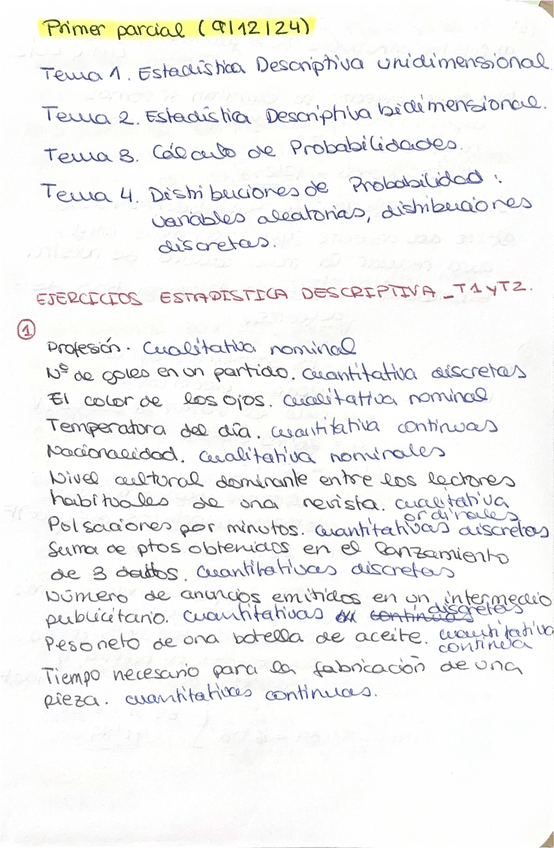 Primer parcial (9/12/24)
Tema 1. Estadística Descriptiva unidimensional.
Tema 2. Estadística Descriptiva bidimensional.
Tema 3. Cálculo de Probabilidades.
Tema 4. Distribuciones de Probabilidad:
variables aleatorias, distribuciones
discretas.
EJERCICIOS ESTADÍSTICA DESCRIPTIVA_T1 y T2.
1
Profesión. Cualitativa nominal
Nº de goles en un partido. Cuantitativa discretas
El color de los ojos. cualitativa nominal
Temperatura del día. cuantitativa continuas
Nacionalidad. cualitativa nominales
Nivel cultural dominante entre los lectores
habituales de una revista. cualitativa
ordinales
Pulsaciones por minutos. cuantitativas discretas
Suma de ptos obtenidos en el lanzamiento
de 3 dados. cuantitativas discretas
Número de anuncios emitidos en un intermedio
publicitario. cuantitativas continuas discretas
Peso neto de una botella de aceite. cuantitativa
continua
Tiempo necesario para la fabricación de una
pieza. cuantitativas continuas.